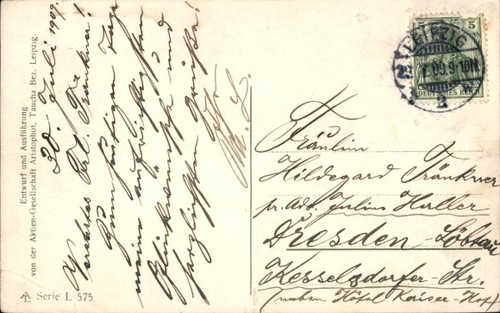 Entwurf und Ausführung
von der Aktien-Gesellschaft Aristophot, Taucha Bez. Leipzig.
Serie I. 575
20. Juli 1909.
Verehrtes Frl. Tränkner!
Zum heutigen Tage
meine aufrichtigsten
Glückwünsche und
herzlichsten Grüße!
5
LEIPZIG
DEUTSCHES REICH
Fräulein
Hildegard Tränkner
pr. Adr. Julius Haller
Dresden-Löbtau
Kesselsdorfer-Str.
(neben Hôtel Kaiser-Hof)